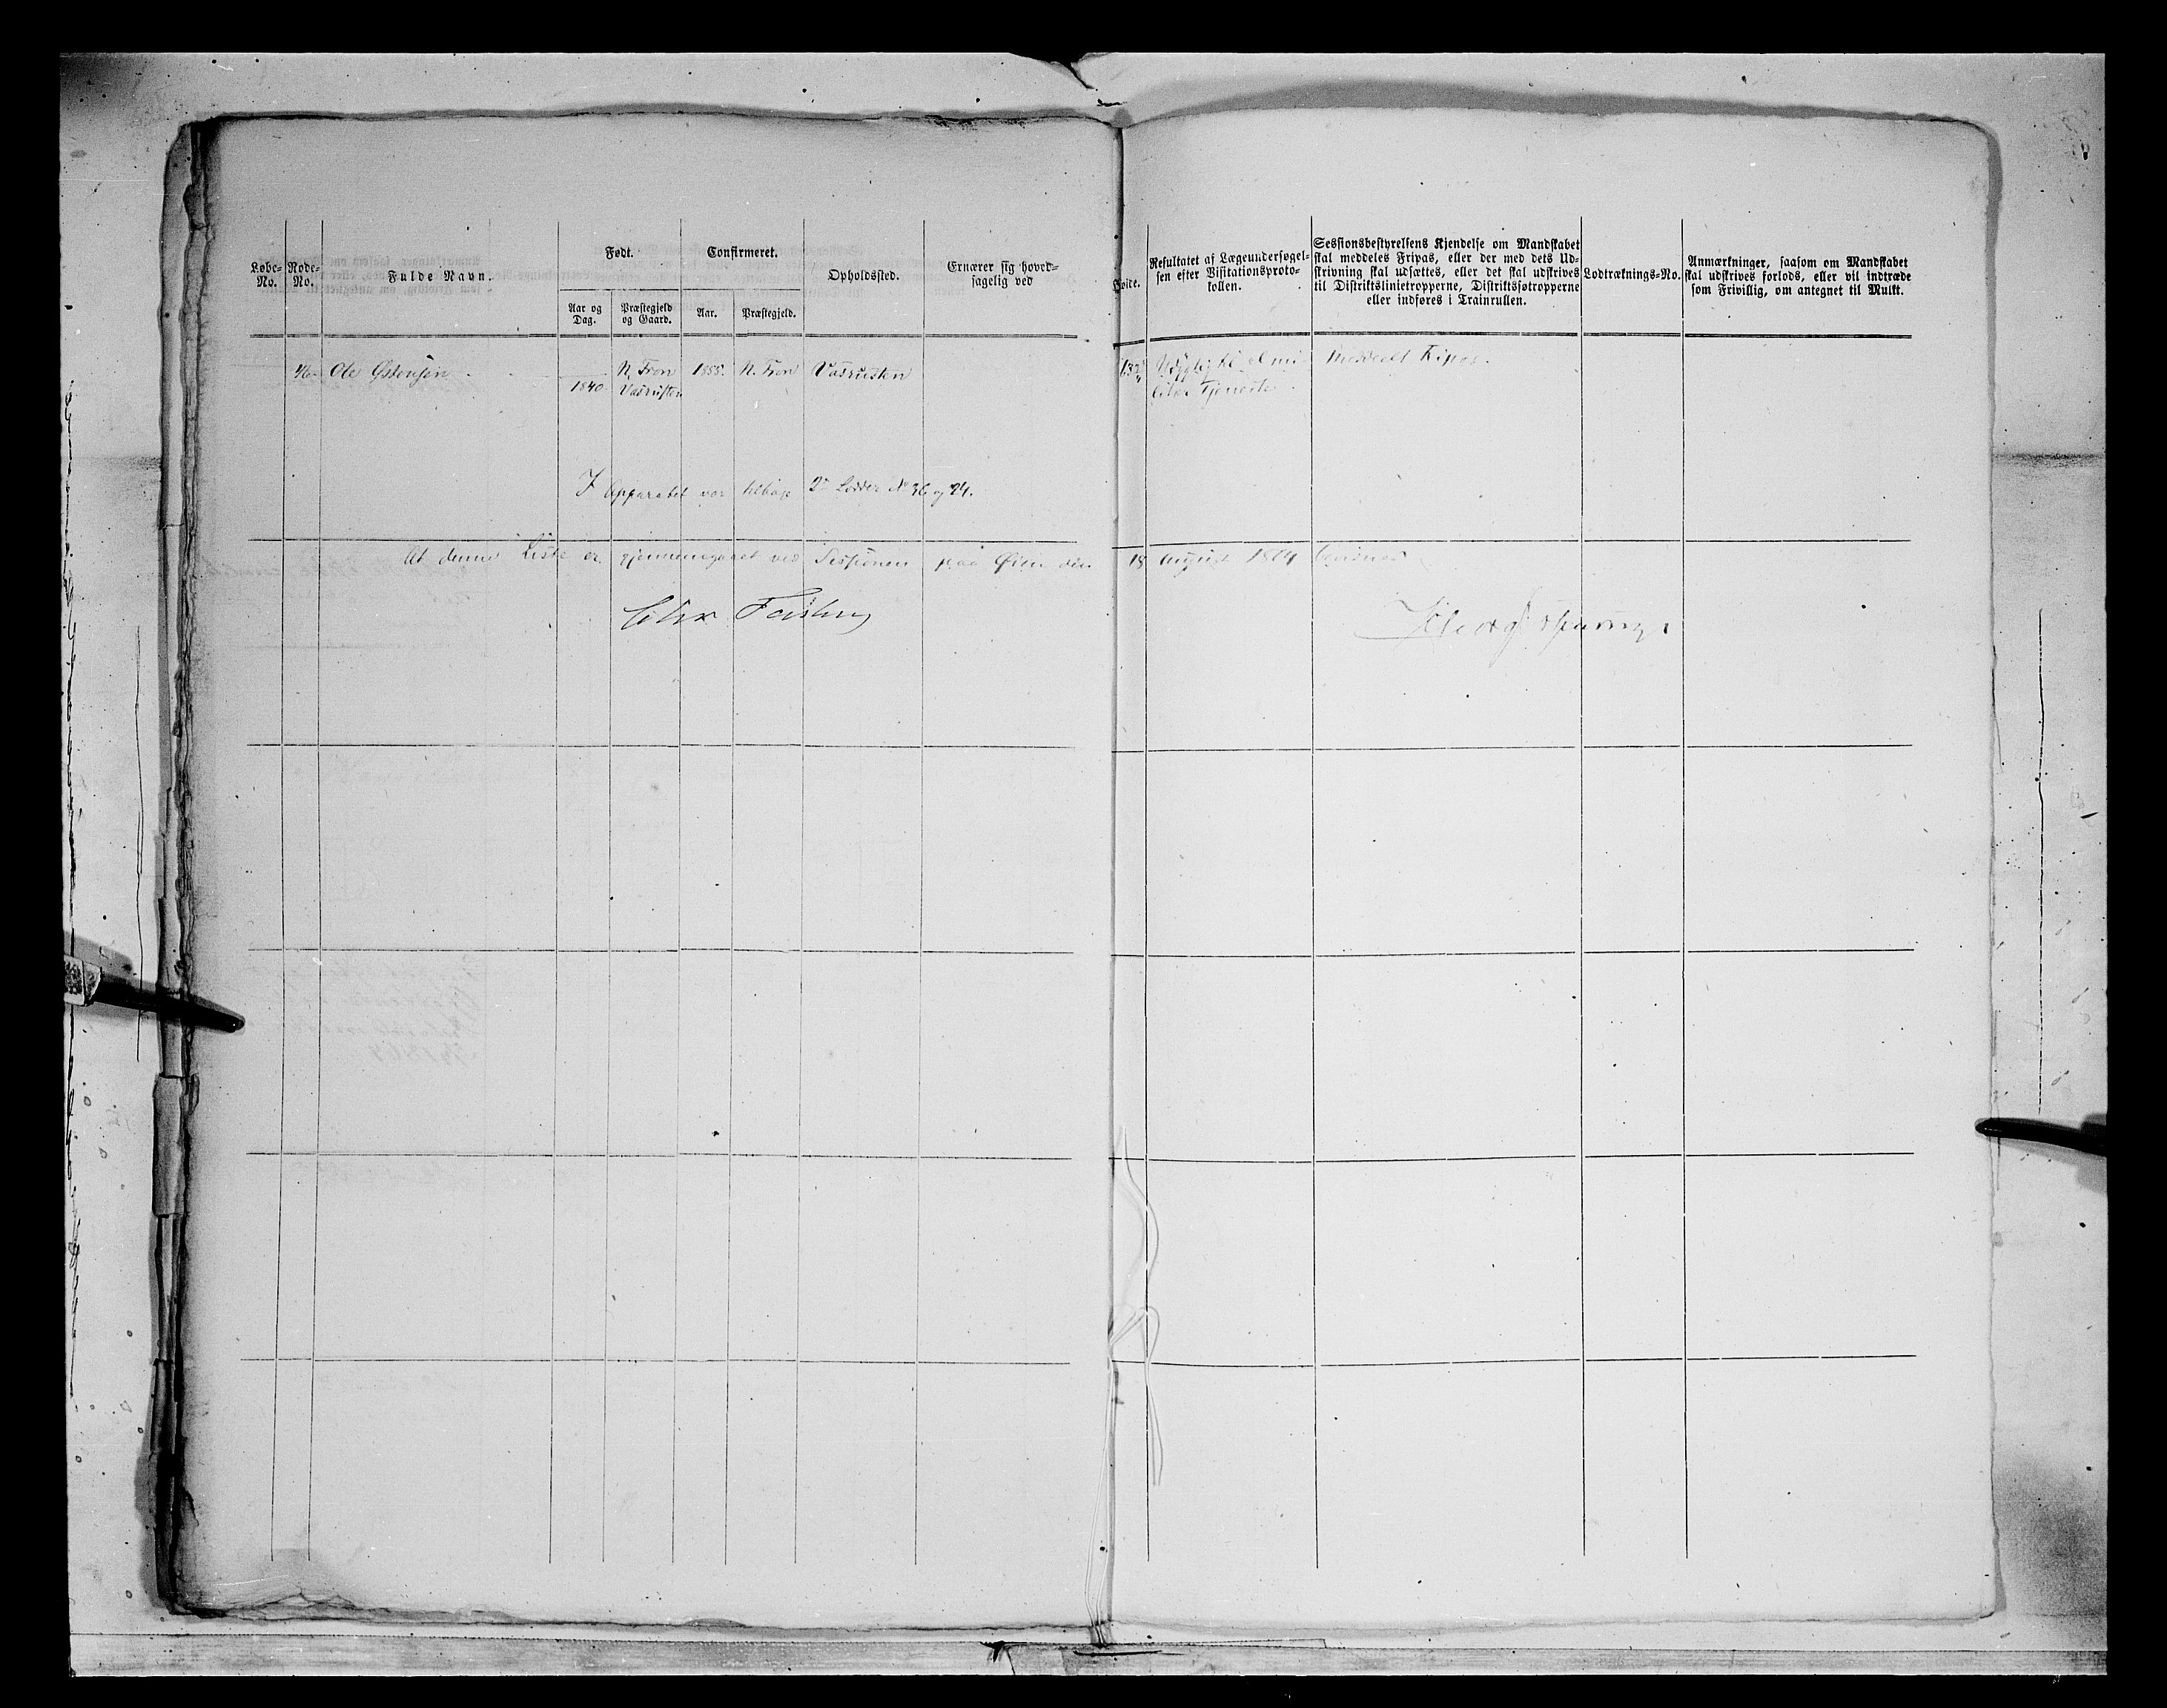 Løbe-No.
Rode-No.
Fulde Navn.
Født.
Aar og Dag.
Præstegjeld og Gaard.
Confirmeret.
Aar.
Præstegjeld.
Opholdssted.
Ernærer sig hoved-
sagelig ved
Høide.
Resultatet af Lægeundersøgel-
sen efter Visitationsproto-
kollen.
Sessionsbestyrelsens Kjendelse om Mandskabet
skal meddeles Fripas, eller der med dets Ud-
skrivning skal udsættes, eller det skal udskrives
til Distriktslinietropperne, Distriktsføtropperne
eller indføres i Trainrullen.
Lodtræknings-No.
Anmærkninger, saasom om Mandskabet
skal udskrives forlods, eller vil indtræde
som Frivillig, om antegnet til Mulkt.
Ole Østensen N. Fron 1855. N. Fron Vadrusten
1840 Vadrusten
Meddeelt Fripas.
Tjeneste
I Apparatet var tilbage 2de Lodder No 36 og 24.
At denne Liste er gjennemgaaet ved Sessionen paa Øien den 18 August 1864 bevidnes